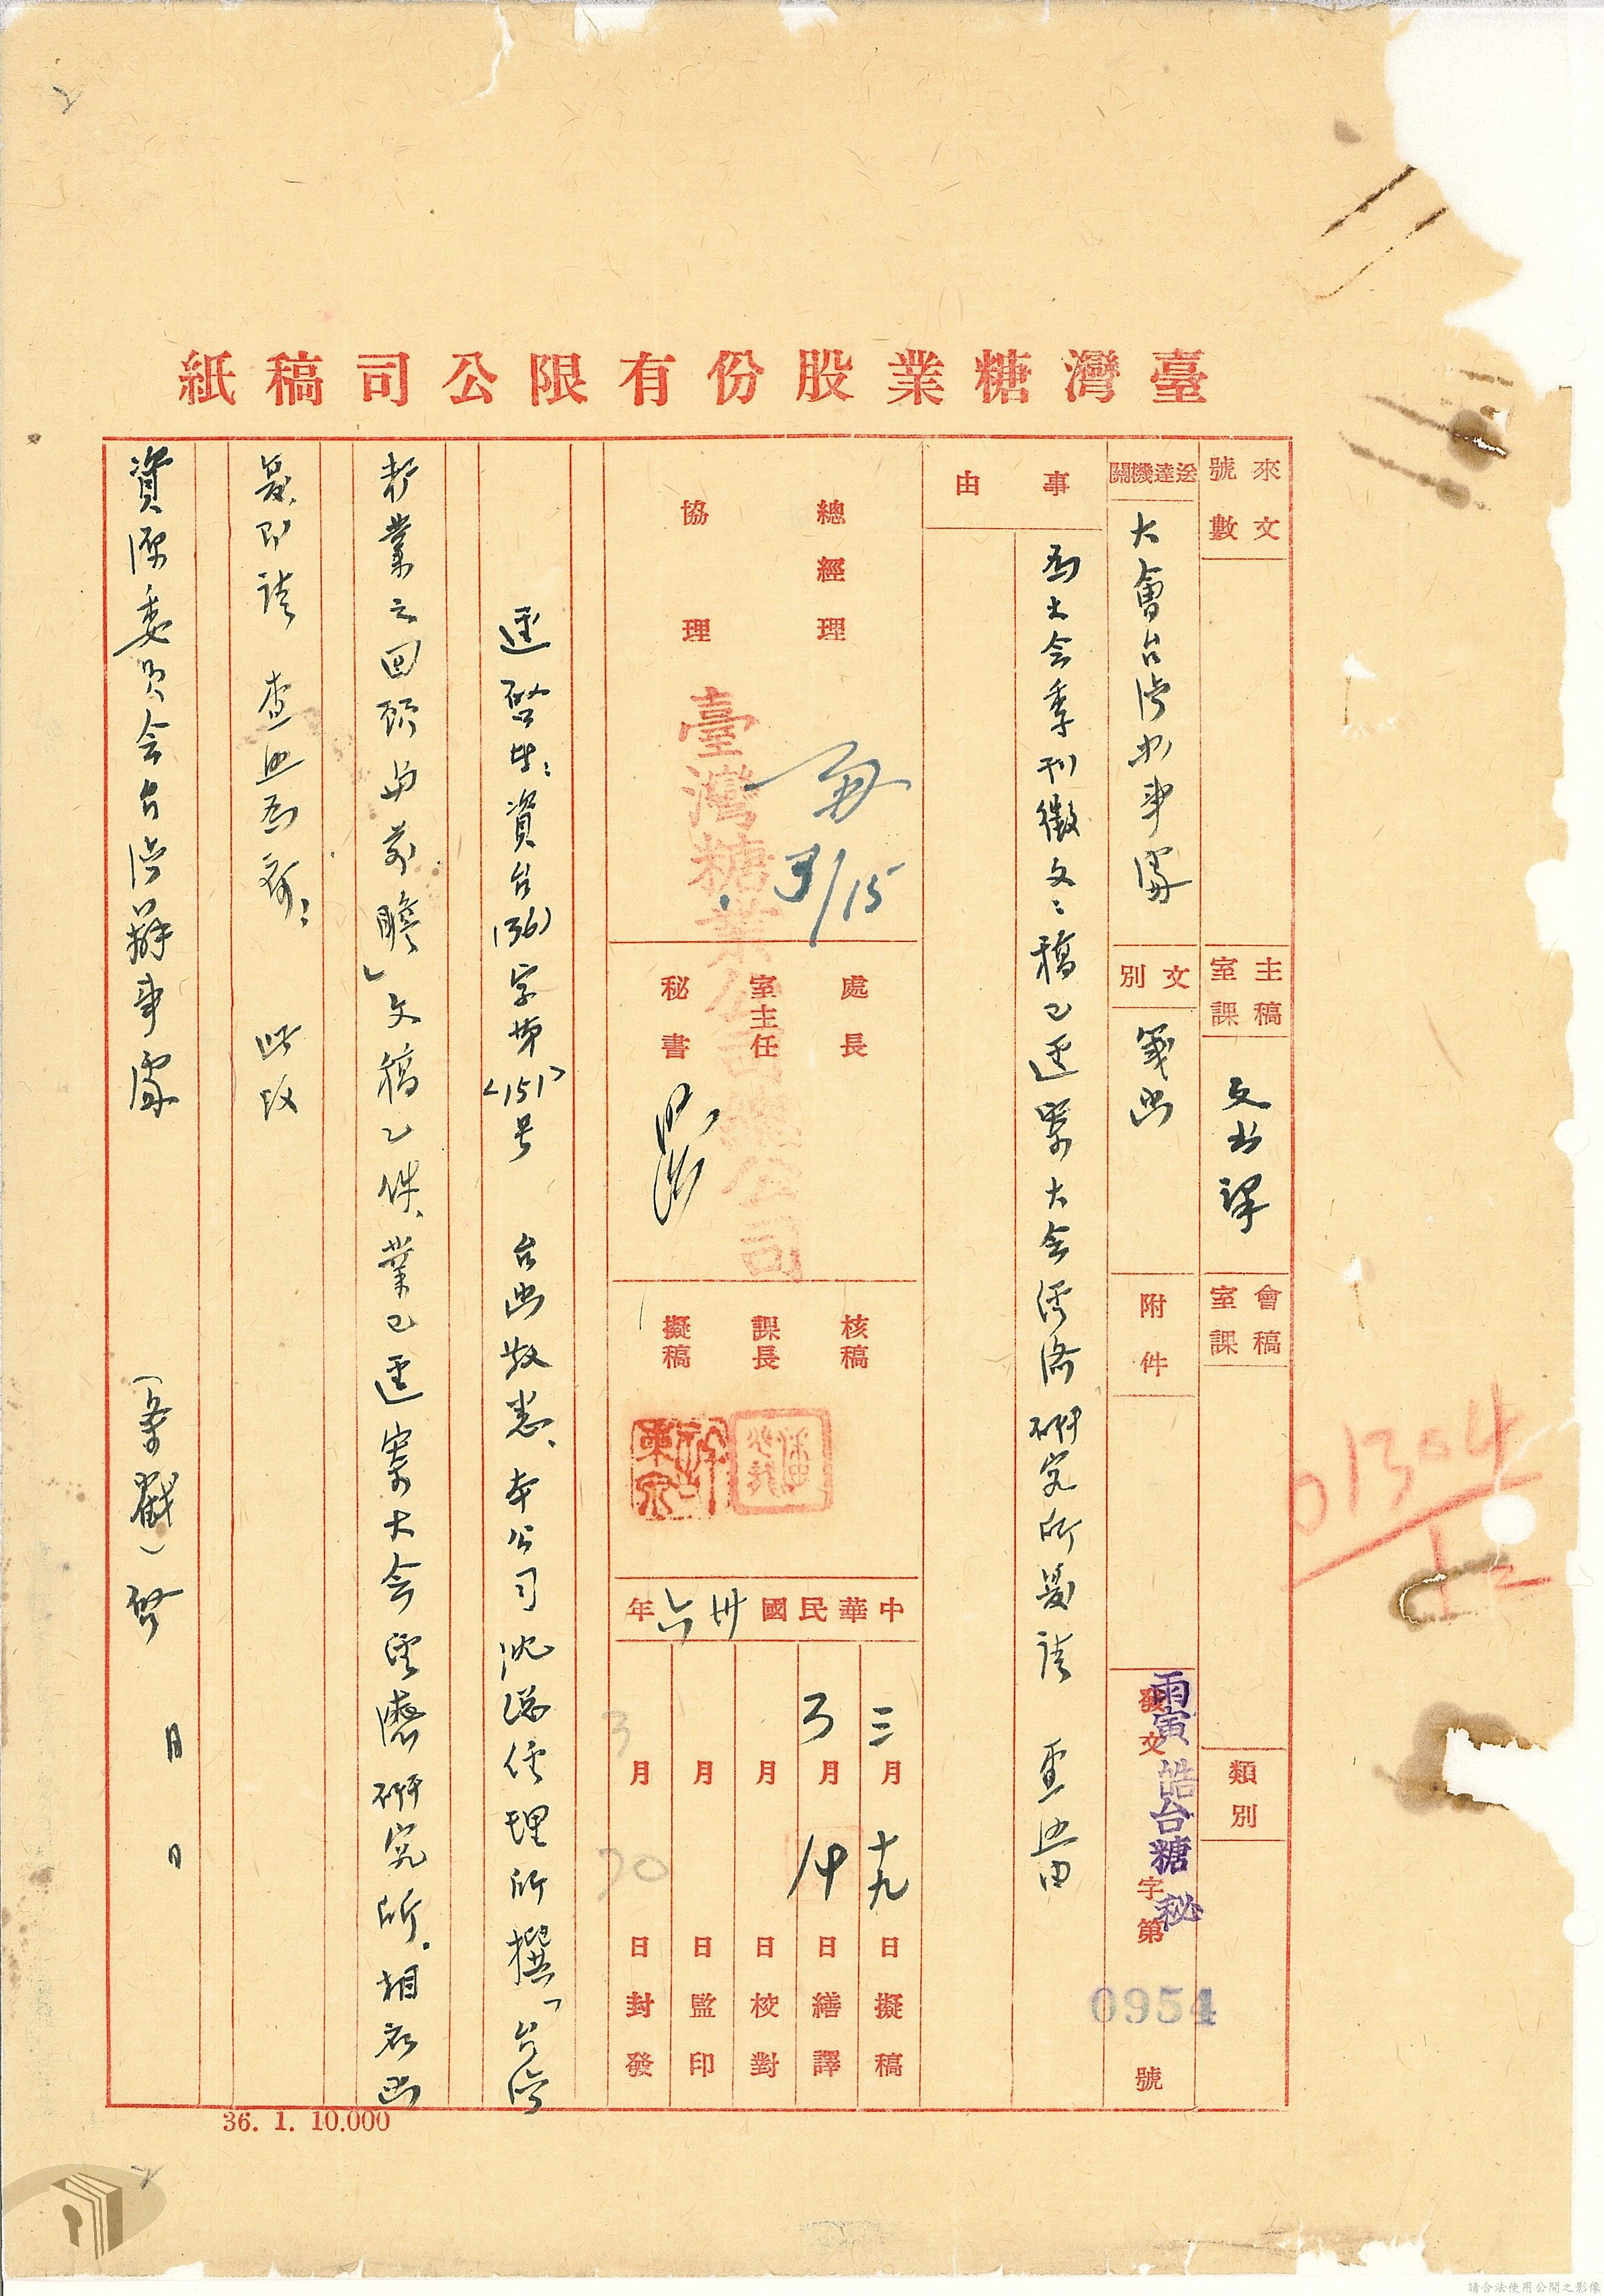 臺灣糖業股份有限公司稿紙
來文號數
主稿室課 文書課
會稿室課
類別
送達機關 大會台灣办事處
文別 箋函
附件
發文 字第 號
丙寅皓台糖秘
0954
事由 為大会季刊徵文稿已逕寄大会經濟研究所箋請 查照由
總經理
協理
3/15
臺灣糖業公司
處長
室主任
秘書
核稿
課長
擬稿
中華民國卅六年
三月十九日擬稿
3月19日繕譯
月 日校對
月 日監印
3月20日封發
逕啓者：資台(36)字第<151>号 台函敬悉、本公司沈總經理所撰「台灣
糖業之回顧与前瞻」文稿乙件、業已逕寄大会經濟研究所。相应函
复即請 查照為荷： 此致
資源委員会台灣辦事處 (条戳)啓 月 日
36. 1. 10.000
01304
12
請合法使用公開之影像